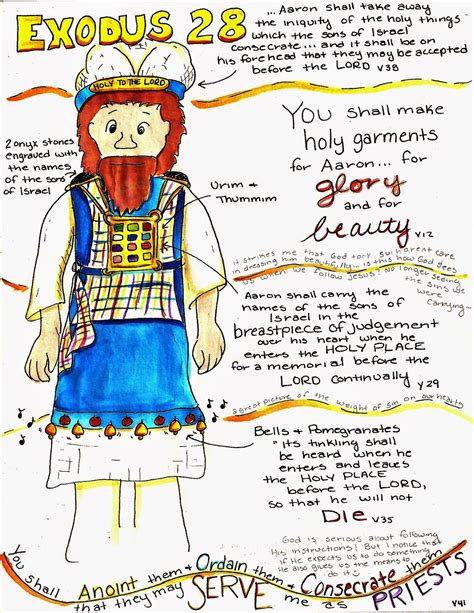 EXODUS 28
... Aaron shall take away
the iniquity of the holy things
which the sons of Israel
consecrate... and it shall be on
his forehead that they may be accepted
before the LORD v38
HOLY TO THE LORD
2 onyx stones
engraved with
the names
of the sons
of Israel
Urim &
Thummim
YOU shall make
holy garments
for Aaron... for
glory
and for
beauty v12
it strikes me that God took such great care
in dressing him beautifully... is this how God sees
us when we follow Jesus! No longer seeing
the sins we
were
carrying~
Aaron shall carry the
names of the sons of
Israel in the
breastpiece of judgement
over his heart when he
enters the HOLY PLACE
for a memorial before the
LORD continually v29
a great picture of the weight of sin on our hearts
Bells & Pomegranates
"its tinkling shall
be heard when he
enters and leaves
the HOLY PLACE
before the LORD,
so that he will not
Die v35
God is serious about following
His instructions! But I notice that
if He expects us to do something
He also gives us the means to
do it!
You shall Anoint them & Ordain them & Consecrate them
that they may SERVE me as PRIESTS
v41